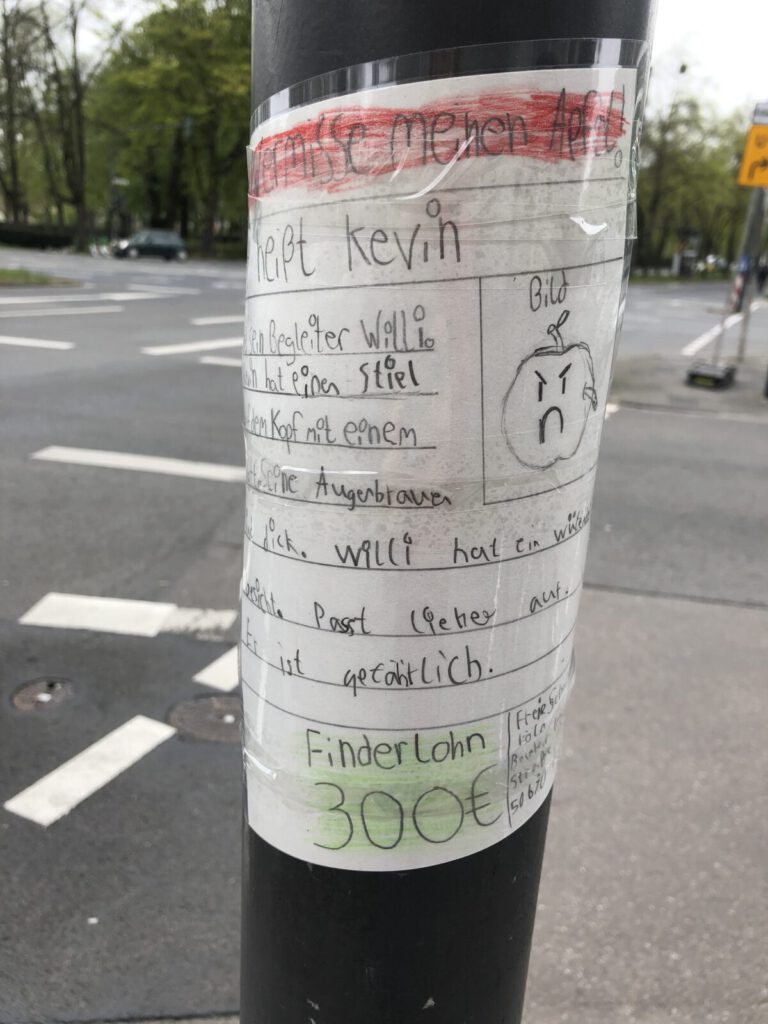 vermisse meinen Apfel!
heißt Kevin
Bild
ein Begleiter Willi.
hat einen Stiel
dem Kopf mit einem
Seine Augenbrauen
dick. Willi hat ein
Passt lieber auf.
Es ist gefährlich.
Finderlohn
300€
Freie
Köln
50670